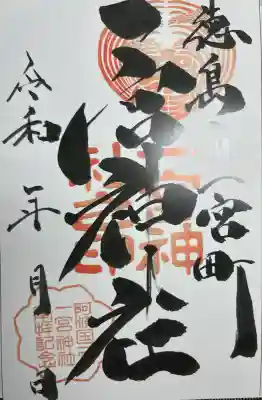 徳島市一宮町
一宮神社
令和 年 月 日
阿波国
一宮神社
参拝記念